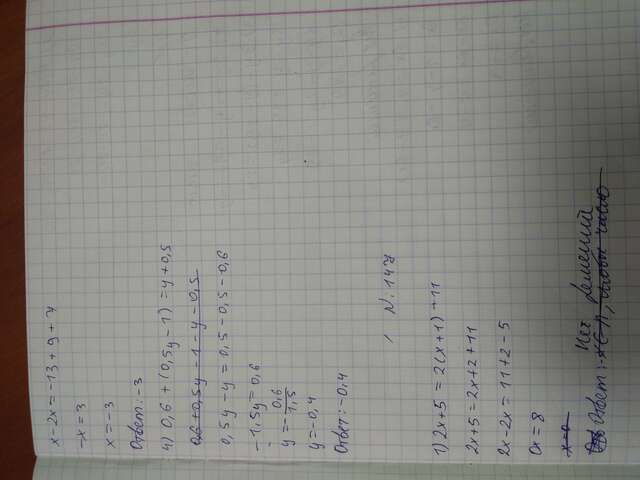 x-2x=-13+9+7
-x=3
x=-3
Ответ:-3
4) 0,6+(0,5y-1)=y+0,5
0,6+0,5y-1-y-0,5
0,5y-y=0,5-0,5-0,6
-1,5y=0,6
y=-0,6/1,5
y=-0,4
Ответ:-0,4
N.147
1) 2x+5=2(x+1)+11
2x+5=2x+2+11
2x-2x=11+2-5
0x=8
Нет решений
Ответ: